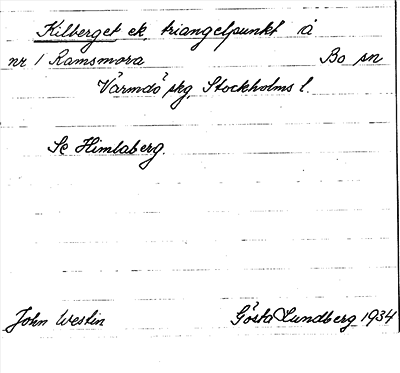 Kilberget ek. triangelpunkt iå
nr 1 Ramsmora Bo sn
Värmdö skg, Stockholms l.
Se Himlaberg.
John Westin Gösta Lundberg 1934